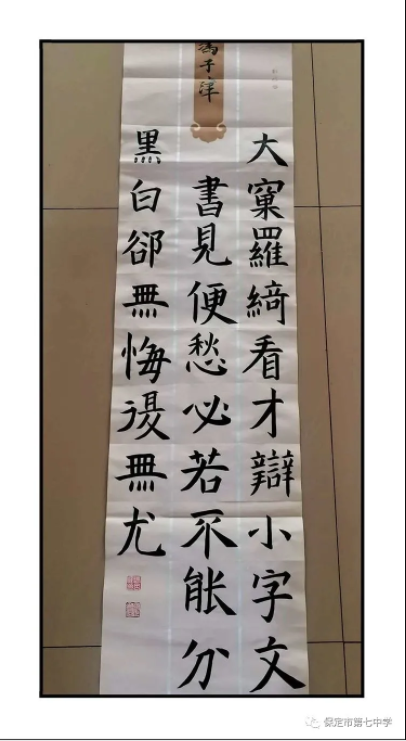 馮子洋
大窠羅綺看才辯小字文
書見便愁必若不能分
黑白郤無悔復無尤
保定市第七中学